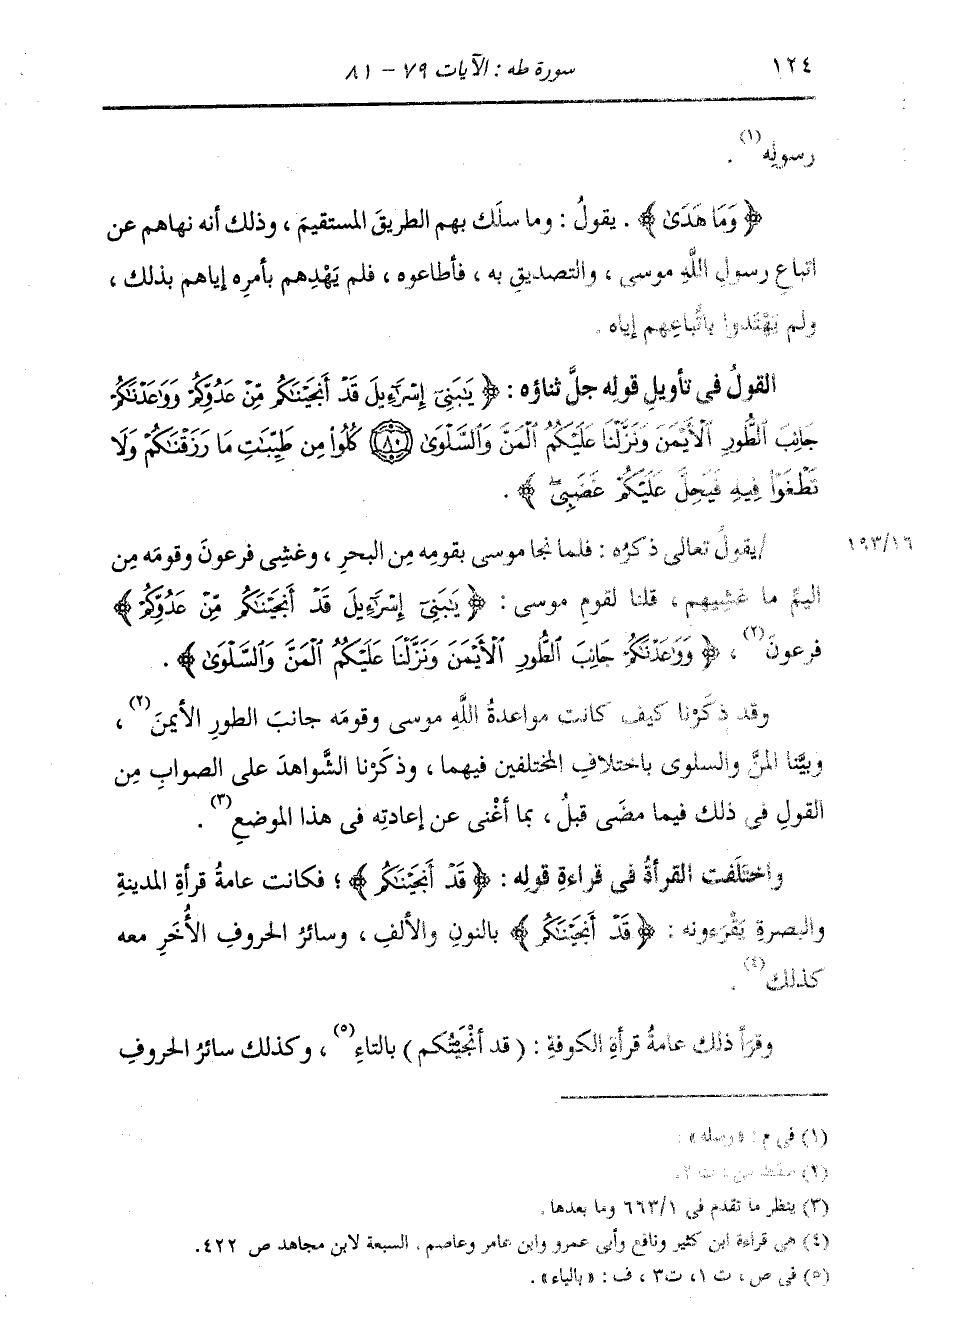 ١٢٤ سورة طه : الآيات ٧٩ - ٨١
رسولِه(١) .
﴿ وَمَا هَدَىٰ ﴾ . يقولُ : وما سلَك بهم الطريقَ المستقيمَ ، وذلك أنه نهاهم عن
اتباعِ رسولِ اللَّهِ موسى ، والتصديقِ به ، فأطاعوه ، فلم يَهْدِهم بأمرِه إياهم بذلك ،
ولم يَهْتَدوا باتِّباعِهم إياه .
القولُ فى تأويلِ قولِه جلَّ ثناؤه : ﴿ يَٰبَنِىٓ إِسْرَٰٓءِيلَ قَدْ أَنجَيْنَٰكُم مِّنْ عَدُوِّكُمْ وَوَٰعَدْنَٰكُمْ
جَانِبَ ٱلطُّورِ ٱلْأَيْمَنَ وَنَزَّلْنَا عَلَيْكُمُ ٱلْمَنَّ وَٱلسَّلْوَىٰ ﴿٨٠﴾ كُلُوا۟ مِن طَيِّبَٰتِ مَا رَزَقْنَٰكُمْ وَلَا
تَطْغَوْا۟ فِيهِ فَيَحِلَّ عَلَيْكُمْ غَضَبِىۖ ﴾ .
١٩٣/١٦ /يقولُ تعالى ذكرُه : فلما نجا موسى بقومِه مِن البحرِ ، وغشِى فرعونَ وقومَه مِن
اليمِّ ما غشِيهم ، قلنا لقومِ موسى : ﴿ يَٰبَنِىٓ إِسْرَٰٓءِيلَ قَدْ أَنجَيْنَٰكُم مِّنْ عَدُوِّكُمْ ﴾
فرعونَ(٢) ، ﴿ وَوَٰعَدْنَٰكُمْ جَانِبَ ٱلطُّورِ ٱلْأَيْمَنَ وَنَزَّلْنَا عَلَيْكُمُ ٱلْمَنَّ وَٱلسَّلْوَىٰ ﴾ .
وقد ذكَرْنا كيف كانت مواعدةُ اللَّهِ موسى وقومَه جانبَ الطورِ الأيمنَ(٢) ،
وبيَّنا المنَّ والسلوى باختلافِ المختلفين فيهما ، وذكَرْنا الشَّواهدَ على الصوابِ مِن
القولِ فى ذلك فيما مضَى قبلُ ، بما أغْنى عن إعادتِه فى هذا الموضعِ(٣) .
واختَلَفت القرأةُ فى قراءةِ قولِه : ﴿ قَدْ أَنجَيْنَٰكُم ﴾ ؛ فكانت عامةُ قرأةِ المدينةِ
والبصرةِ يَقْرَءونه : ﴿ قَدْ أَنجَيْنَٰكُم ﴾ بالنونِ والألفِ ، وسائرُ الحروفِ الأُخَرِ معه
كذلك(٤) .
وقرَأ ذلك عامةُ قرأةِ الكوفةِ : ( قد أنْجَيْتُكم ) بالتاءِ(٥) ، وكذلك سائرُ الحروفِ
(١) فى م : « رسله » .
(٢) سقط من : ت ٢.
(٣) ينظر ما تقدم فى ٦٦٣/١ وما بعدها .
(٤) هى قراءة ابن كثير ونافع وأبى عمرو وابن عامر وعاصم . السبعة لابن مجاهد ص ٤٢٢.
(٥) فى ص ، ت ١، ت٣ ، ف : « بالياء » .